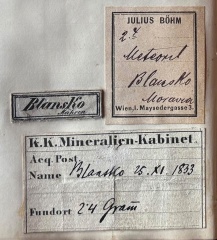 JULIUS BÖHM
2.4
Meteorit
Blansko
Moravia
Wien, I. Maysedergasse 3.
Blansko
Mähren
K. K. Mineralien-Kabinet.
Acq. Post
Name Blansko 25. XI. 1833
Fundort 2·4 Gram